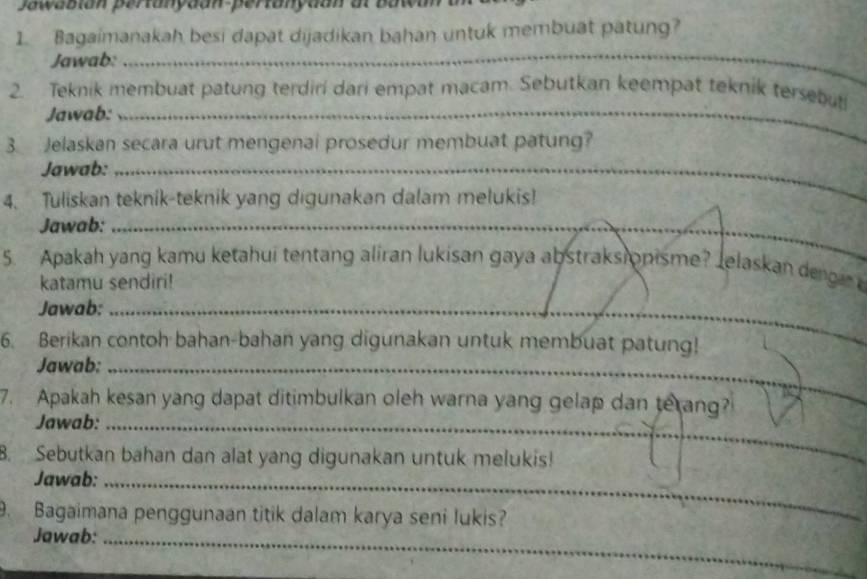 Jawablah pertanyaan-pertanyaan di bawah
1. Bagaimanakah besi dapat dijadikan bahan untuk membuat patung?
Jawab:
2. Teknik membuat patung terdiri dari empat macam. Sebutkan keempat teknik tersebut!
Jawab:
3. Jelaskan secara urut mengenai prosedur membuat patung?
Jawab:
4. Tuliskan teknik-teknik yang digunakan dalam melukis!
Jawab:
5. Apakah yang kamu ketahui tentang aliran lukisan gaya abstraksionisme? Jelaskan dengan
katamu sendiri!
Jawab:
6. Berikan contoh bahan-bahan yang digunakan untuk membuat patung!
Jawab:
7. Apakah kesan yang dapat ditimbulkan oleh warna yang gelap dan terang?
Jawab:
8. Sebutkan bahan dan alat yang digunakan untuk melukis!
Jawab:
9. Bagaimana penggunaan titik dalam karya seni lukis?
Jawab: